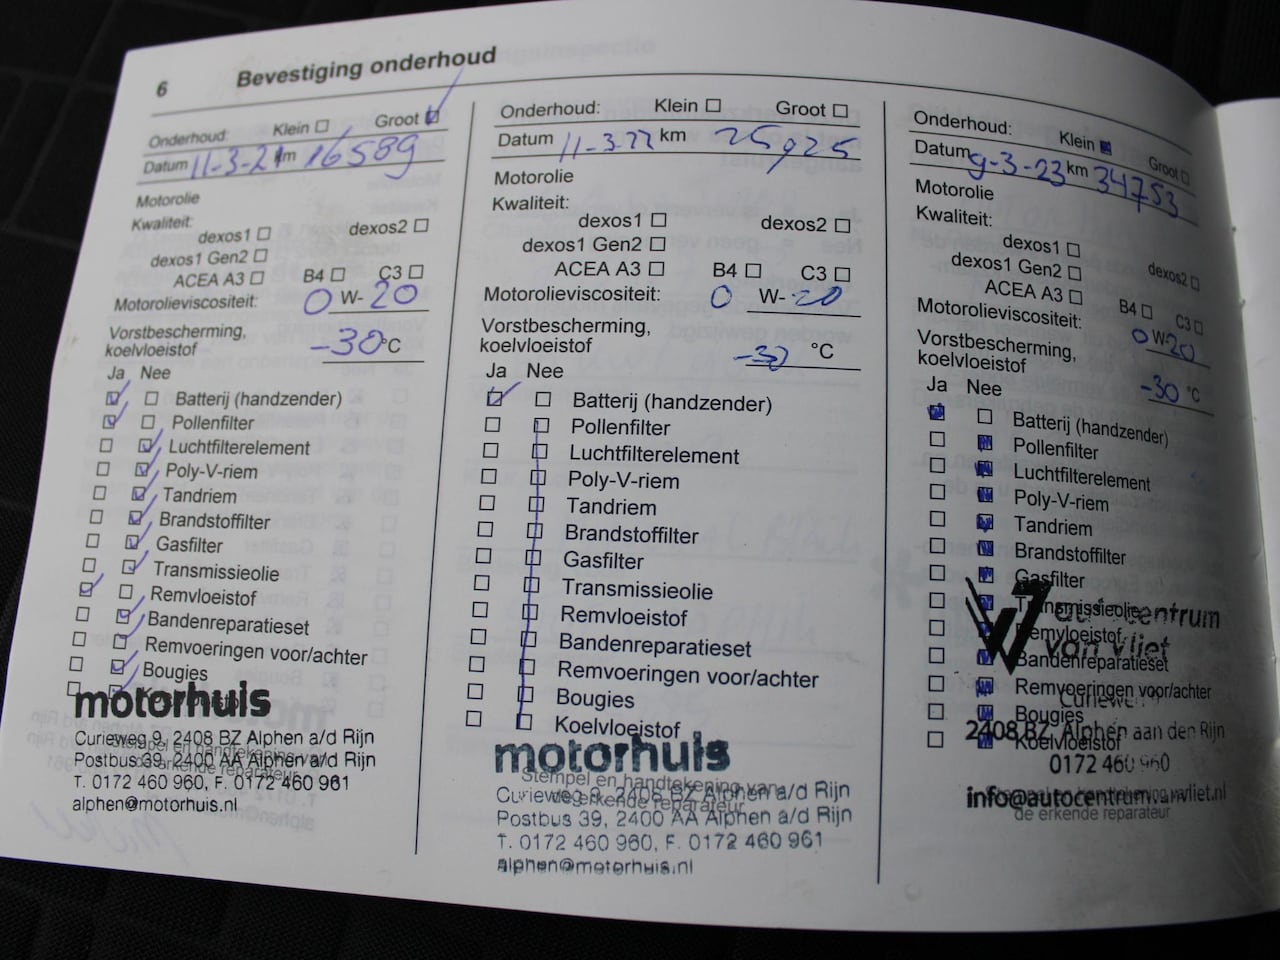 6 Bevestiging onderhoud
Onderhoud: Klein Groot
Datum 11-3-21 km 16589
Motorolie
Kwaliteit:
dexos1 dexos2
dexos1 Gen2
ACEA A3 B4 C3
Motorolieviscositeit: 0 W- 20
Vorstbescherming,
koelvloeistof -30 °C
Ja Nee
Batterij (handzender)
Pollenfilter
Luchtfilterelement
Poly-V-riem
Tandriem
Brandstoffilter
Gasfilter
Transmissieolie
Remvloeistof
Bandenreparatieset
Remvoeringen voor/achter
Bougies
motorhuis
Curieweg 9, 2408 BZ Alphen a/d Rijn
Stempel en handtekening van
Postbus 39, 2400 AA Alphen a/d Rijn
de erkende reparateur
T. 0172 460 960, F. 0172 460 961
alphen@motorhuis.nl
Onderhoud: Klein Groot
Datum 11-3-22 km 25925
Motorolie
Kwaliteit:
dexos1 dexos2
dexos1 Gen2
ACEA A3 B4 C3
Motorolieviscositeit: 0 W- 20
Vorstbescherming,
koelvloeistof -30 °C
Ja Nee
Batterij (handzender)
Pollenfilter
Luchtfilterelement
Poly-V-riem
Tandriem
Brandstoffilter
Gasfilter
Transmissieolie
Remvloeistof
Bandenreparatieset
Remvoeringen voor/achter
Bougies
Koelvloeistof
motorhuis
Stempel en handtekening van
Curieweg 9, 2408 BZ Alphen a/d Rijn
de erkende reparateur
Postbus 39, 2400 AA Alphen a/d Rijn
T. 0172 460 960, F. 0172 460 961
alphen@motorhuis.nl
Onderhoud: Klein Groot
Datum 9-3-23 km 34753
Motorolie
Kwaliteit:
dexos1 dexos2
dexos1 Gen2
ACEA A3 B4 C3
Motorolieviscositeit: 0 W- 20
Vorstbescherming,
koelvloeistof -30 °C
Ja Nee
Batterij (handzender)
Pollenfilter
Luchtfilterelement
Poly-V-riem
Tandriem
Brandstoffilter
Gasfilter
Transmissieolie
autocentrum
Remvloeistof
van vliet
Bandenreparatieset
Remvoeringen voor/achter
Bougies
2408 BZ Alphen aan den Rijn
Koelvloeistof
0172 460 960
info@autocentrumvanvliet.nl
Stempel en handtekening van
de erkende reparateur